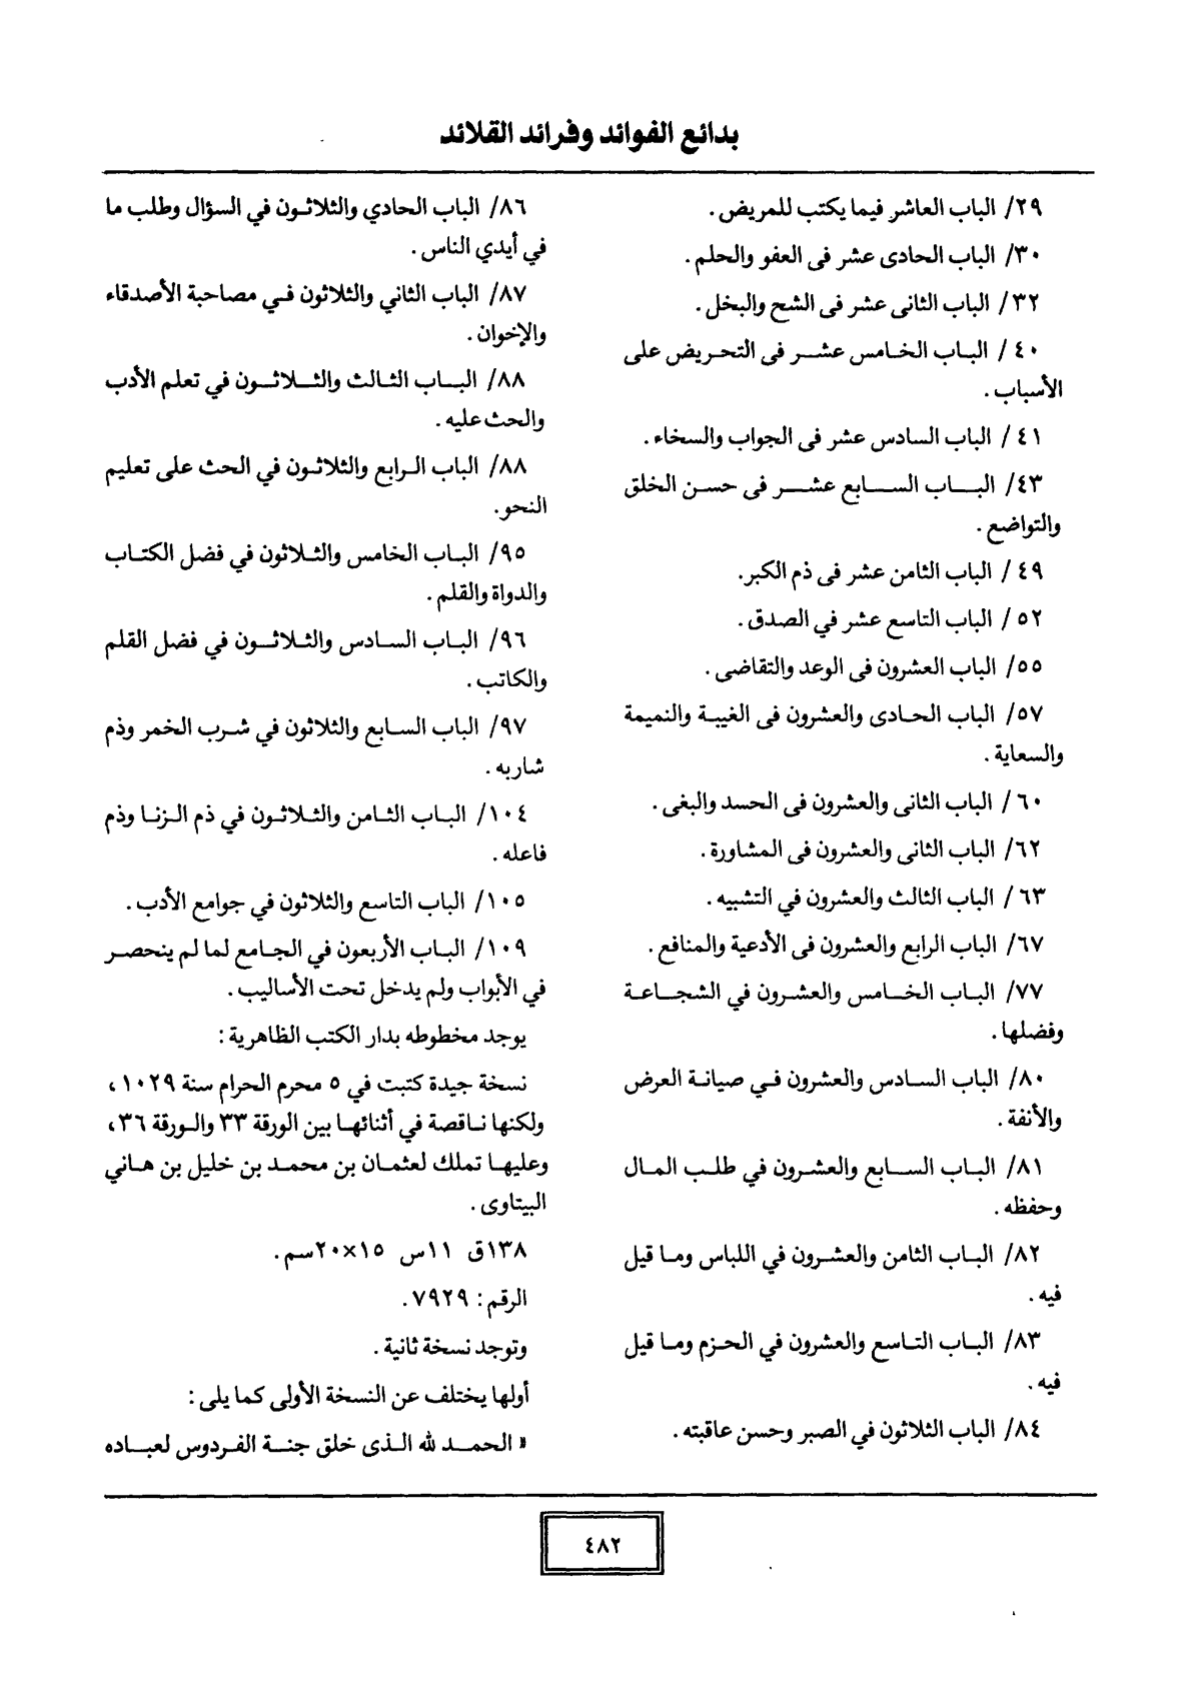 بدائع الفوائد وفرائد القلائد
٢٩/ الباب العاشر فيما يكتب للمريض.
٣٠/ الباب الحادى عشر فى العفو والحلم.
٣٢/ الباب الثانى عشر فى الشح والبخل.
٤٠/ الباب الخامس عشر فى التحريض على
الأسباب.
٤١/ الباب السادس عشر فى الجواب والسخاء.
٤٣/ الباب السابع عشر فى حسن الخلق
والتواضع.
٤٩/ الباب الثامن عشر فى ذم الكبر.
٥٢/ الباب التاسع عشر في الصدق.
٥٥/ الباب العشرون فى الوعد والتقاضى.
٥٧/ الباب الحادى والعشرون فى الغيبة والنميمة
والسعاية.
٦٠/ الباب الثانى والعشرون فى الحسد والبغى.
٦٢/ الباب الثانى والعشرون فى المشاورة.
٦٣/ الباب الثالث والعشرون في التشبيه.
٦٧/ الباب الرابع والعشرون فى الأدعية والمنافع.
٧٧/ الباب الخامس والعشرون في الشجاعة
وفضلها.
٨٠/ الباب السادس والعشرون في صيانة العرض
والأنفة.
٨١/ الباب السابع والعشرون في طلب المال
وحفظه.
٨٢/ الباب الثامن والعشرون في اللباس وما قيل
فيه.
٨٣/ الباب التاسع والعشرون في الحزم وما قيل
فيه.
٨٤/ الباب الثلاثون في الصبر وحسن عاقبته.
٨٦/ الباب الحادي والثلاثون في السؤال وطلب ما
في أيدي الناس.
٨٧/ الباب الثاني والثلاثون في مصاحبة الأصدقاء
والإخوان.
٨٨/ الباب الثالث والثلاثون في تعلم الأدب
والحث عليه.
٨٨/ الباب الرابع والثلاثون في الحث على تعليم
النحو.
٩٥/ الباب الخامس والثلاثون في فضل الكتاب
والدواة والقلم.
٩٦/ الباب السادس والثلاثون في فضل القلم
والكاتب.
٩٧/ الباب السابع والثلاثون في شرب الخمر وذم
شاربه.
١٠٤/ الباب الثامن والثلاثون في ذم الزنا وذم
فاعله.
١٠٥/ الباب التاسع والثلاثون في جوامع الأدب.
١٠٩/ الباب الأربعون في الجامع لما لم ينحصر
في الأبواب ولم يدخل تحت الأساليب.
يوجد مخطوطه بدار الكتب الظاهرية:
نسخة جيدة كتبت في ٥ محرم الحرام سنة ١٠٢٩،
ولكنها ناقصة في أثنائها بين الورقة ٣٣ والورقة ٣٦،
وعليها تملك لعثمان بن محمد بن خليل بن هاني
البيتاوى.
١٣٨ق ١١س ١٥×٢٠سم.
الرقم: ٧٩٢٩.
وتوجد نسخة ثانية.
أولها يختلف عن النسخة الأولى كما يلى:
« الحمد لله الذى خلق جنة الفردوس لعباده
٤٨٢